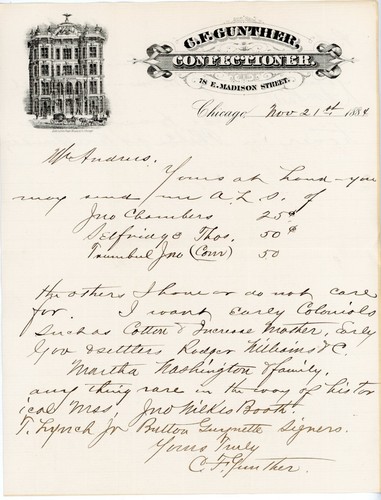 C.F. GUNTHER,
CONFECTIONER.
78 E. MADISON STREET.
Chicago, Nov 21st 1884
Mr Andreis.
Yours at hand – you
may send me A.L.S. of
Jno Chambers 25¢
Selfridge Thos. 50¢
Trumbul Jno (Conn) 50
The others I have or do not care
for. I want Early Colonials
Such as Cotton & Increase Mather, Early
Gov & settlers Rodger Williams & C.
Martha Washington & family.
any thing rare in the way of histor
ical Mss. Jno Wilkes Booth.
T. Lynch Jr Button Guynette Signers.
Yours Truly
C.F. Gunther.